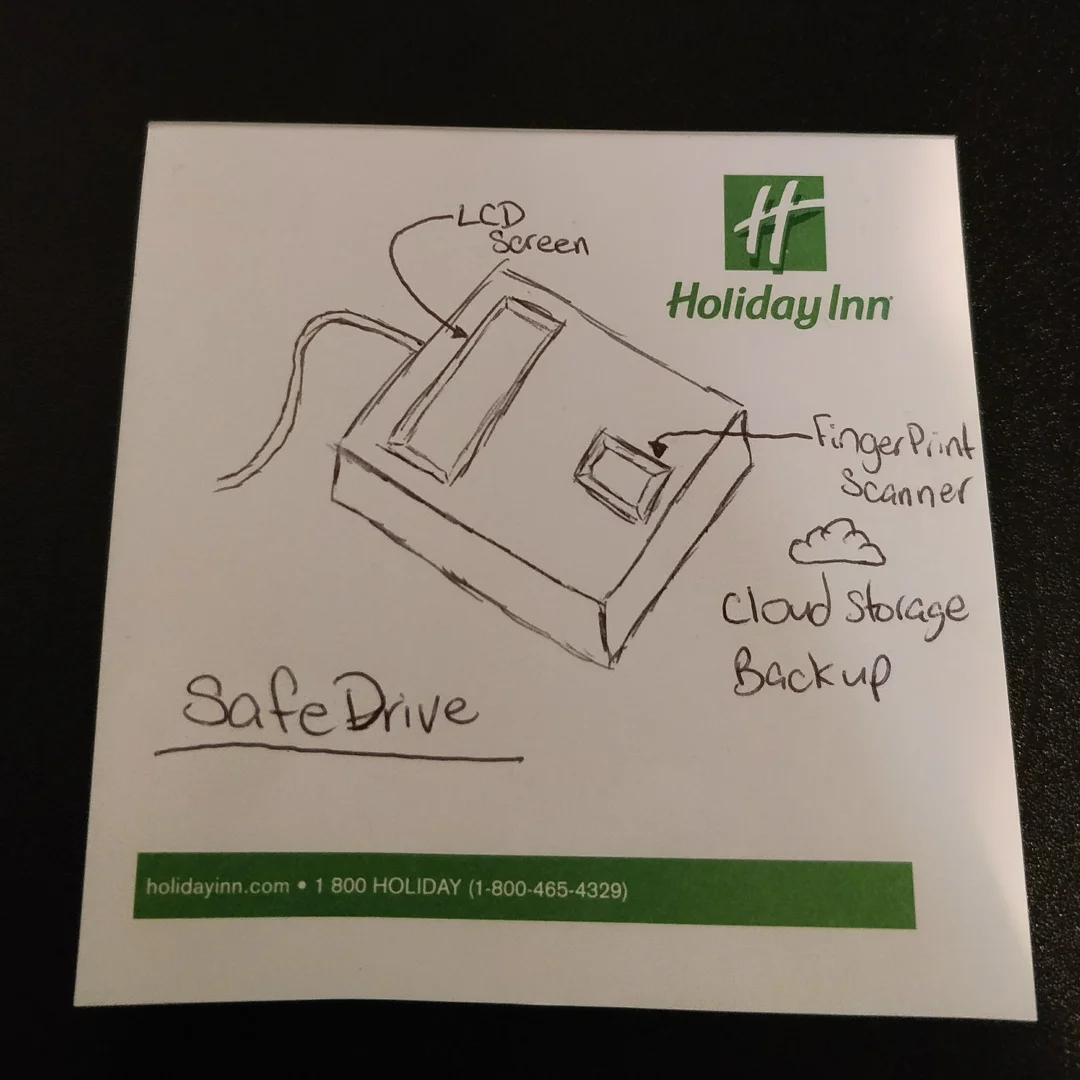 LCD
Screen
H
Holiday Inn
FingerPrint
Scanner
Cloud Storage
Backup
SafeDrive
holidayinn.com • 1 800 HOLIDAY (1-800-465-4329)